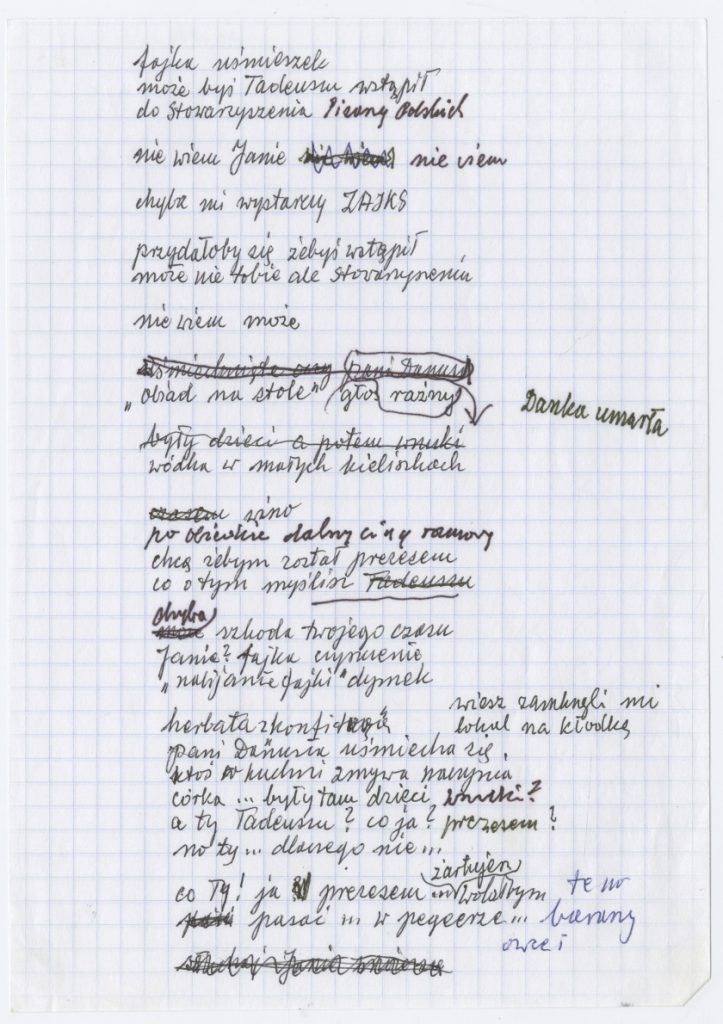 fajka uśmieszek
może byś Tadeuszu wstąpił
do Stowarzyszenia Pisarzy Polskich
nie wiem Janie nie wiem
chyba mi wystarczy ZAIKS
przydałoby się żebyś wstąpił
może nie tobie ale Stowarzyszeniu
nie wiem może
uśmiechnięte oczy pani Danusi
„obiad na stole" głos raźny
Danka umarła
były dzieci a potem wnuki
wódka w małych kieliszkach
czasem wino
po obiedzie dalszy ciąg rozmowy
chcą żebym został prezesem
co o tym myślisz Tadeuszu
chyba
może szkoda twojego czasu
Janie? fajka czyszczenie
„nabijanie fajki" dymek
wiesz zamknęli mi
lokal na kłódkę
herbata z konfiturą
pani Danusia uśmiecha się
ktoś w kuchni zmywa naczynia
córka ... były tam dzieci, wnuki?
a ty Tadeuszu? co ja? prezesem?
no ty ... dlaczego nie ...
żartujesz
co Ty! ja prezesem ... wolałbym
pasać ... w pegeerze ... barany
owce i